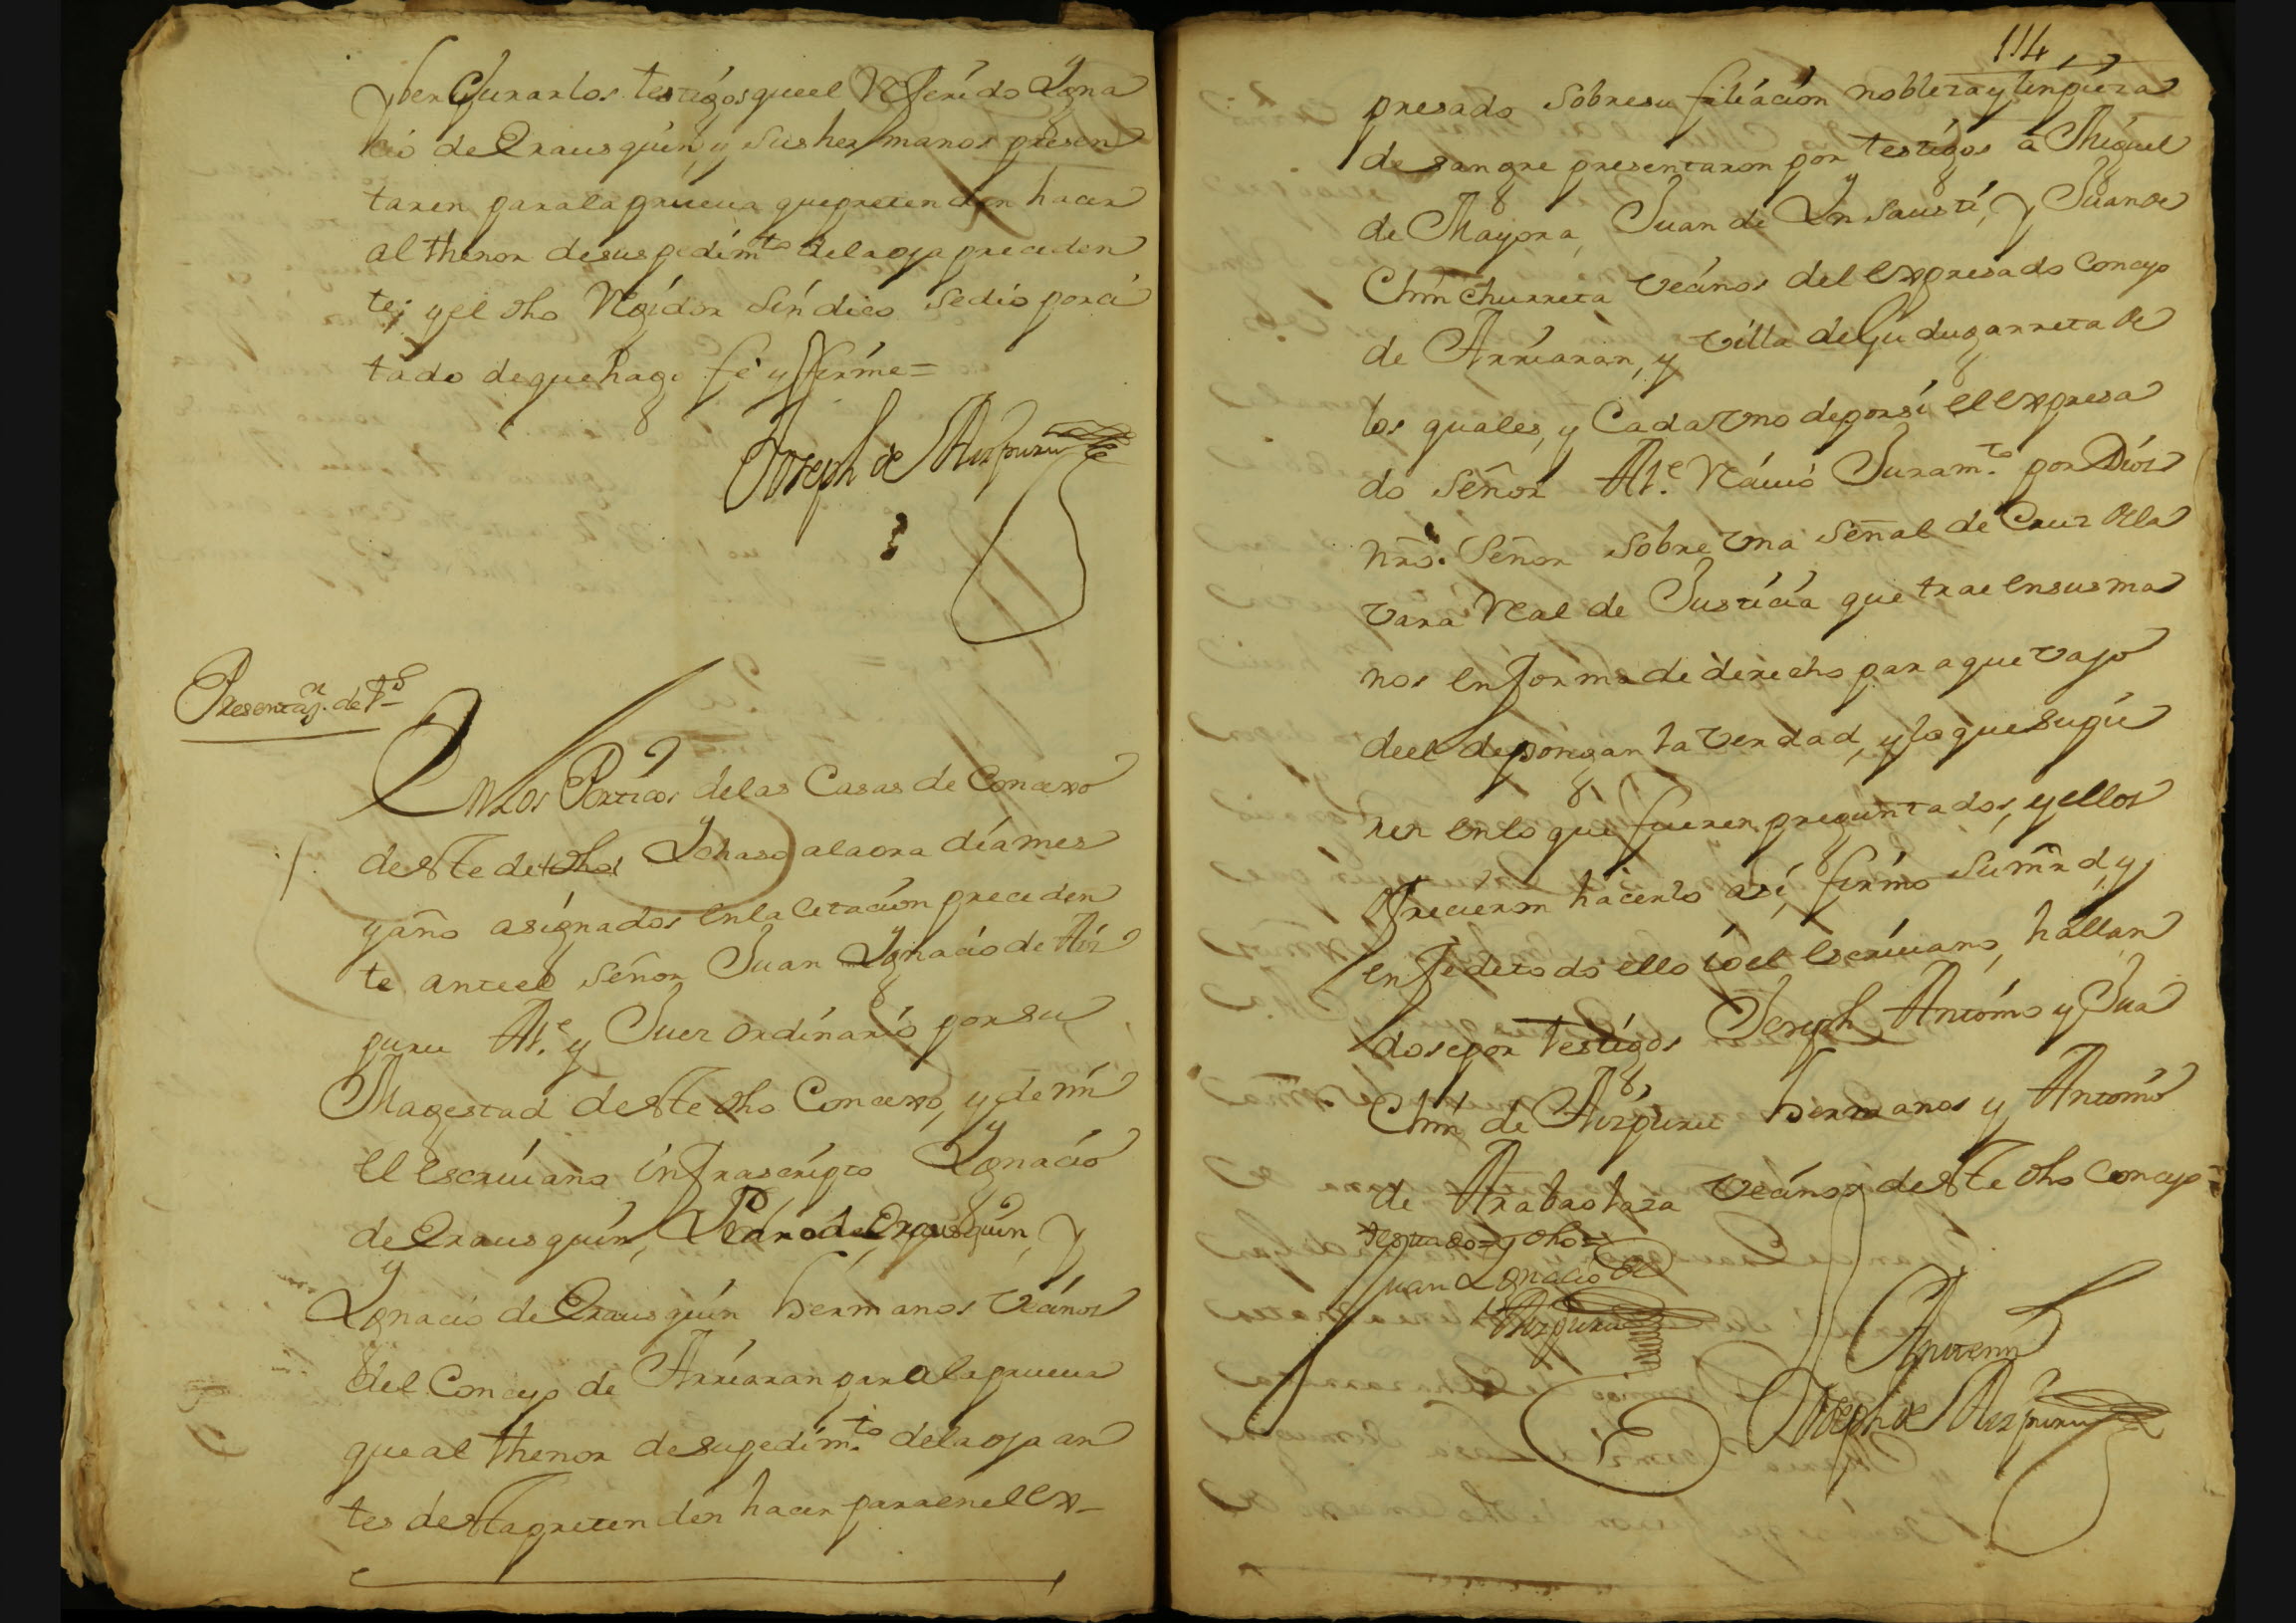 y ver Jurar los testigos que el Referido Ygna
cio de Erausquin, y sus hermanos presen
taren para la prueua que pretenden hacer
al thenor de sus pedim.to de la oja preceden
te; y el dho Regidor Sindico se dio por ci
tado de que hago fe y firme =
Joseph de Aizpuru
Presentaz.n de t.s
En los Porticos de las Casas de Concexo
deste de dho Ychaso a la ora dia mes
y año asignados en la citacion preceden
te ante el Señor Juan Ygnacio de Aiz
puru Al.e y Juez ordinario por su
Magestad deste dho Concexo, y de mi
el escriuano infrascripto Ygnacio
de Erausquin, Pedro de Erausquin, y
Ygnacio de Erausquin hermanos vecinos
del Concejo de Arriaran para la prueua
que al thenor de su pedim.to de la oja an
tes desta pretenden hacer para en el ex-
114
presado sobre su filiacion nobleza y linpieza
de sangre presentaron por testigos a Miguel
de Mayora, Juan de Ynsausti, y Juan de
Chinchurreta vecinos del expresado Concejo
de Arriaran, y villa de Gudugarreta de
los quales, y Cada vno de por si el expresa
do Señor Al.e Reciuio Juram.to por Dios
nro. Señor sobre vna señal de Cruz de la
vara Real de Justicia que trae en sus ma
nos en forma de derecho para que vajo
de el depongan la verdad, y lo que supie
ren en lo que fueren preguntados, y ellos
ofrecieron hacerlo asi, firmo su mrd, y
en fe de todo ello io el escriuano, hallan
dose por testigos Joseph Antonio y Jua
Chin de Aizpuru hermanos y Antonio
de Arabaolaza vecinos deste dho Concejo =
testado = y dho =
Juan Ygnacio de
Aizpuru
Antemi
Joseph de Aizpuru